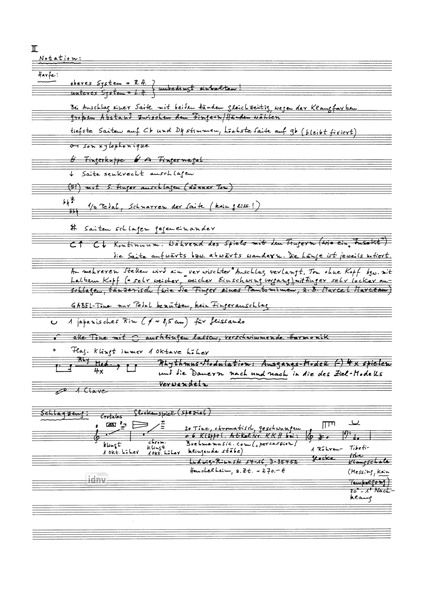 II
Notation:
Harfe:
oberes System = R.H.
unteres System = L.H. } unbedingt einhalten!
Bei Anschlag einer Saite mit beiden Händen gleichzeitig wegen der Klangfarben
großen Abstand zwischen den Fingern/Händen wählen
tiefste Saiten auf C♭ und D♮ stimmen, höchste Saite auf g♭ (bleibt fixiert)
son xylophonique
Fingerkuppe Fingernagel
↓ Saite senkrecht anschlagen
(5!) mit 5. Finger anschlagen (dünner Ton)
1/2 Pedal, Schnarren der Saite (kein gliss.!)
Saiten schlagen gegeneinander
Kontinuum. Während des Spiels mit den Fingern (wie ein "Insekt")
die Saite aufwärts bzw. abwärts wandern. Die Länge ist jeweils notiert.
An mehreren Stellen wird ein "verwischter" Anschlag verlangt, Ton ohne Kopf bzw. mit
halbem Kopf (= sehr weicher, weicher Einschwingvorgang) mit Finger sehr locker an-
schlagen, tänzerisch (wie die Finger eines Pantomimen, z.B. Marcel Marceau)
GABEL-Töne nur Pedal benützen, kein Fingeranschlag
1 japanisches Rin (⌀ = 8,5 cm) für glissando
alle Töne mit ausklingen lassen, verschwimmende Harmonik
Flag. klingt immer 1 Oktave höher
Rhy Mod. 4x Rhythmus-Modulation: Ausgangs-Modell (-) 4x spielen
und die Dauern nach und nach in die des Ziel-Modells
verwandeln
1 Clave
Schlagzeug: Crotales Glockenspiel (spezial)
klingt 1 Okt. höher
chrom. klingt 1 Okt. höher
20 Töne, chromatisch, geschwungen
+ 6 Klöppel. Artikelnr. KKH bei:
klingende Stäbe)
1 Röhren-
glocke
Tibeti-
sche
Klangschale
(Messing, kein
Tempelgong)
20" - 1' Nach-
klang
idnv